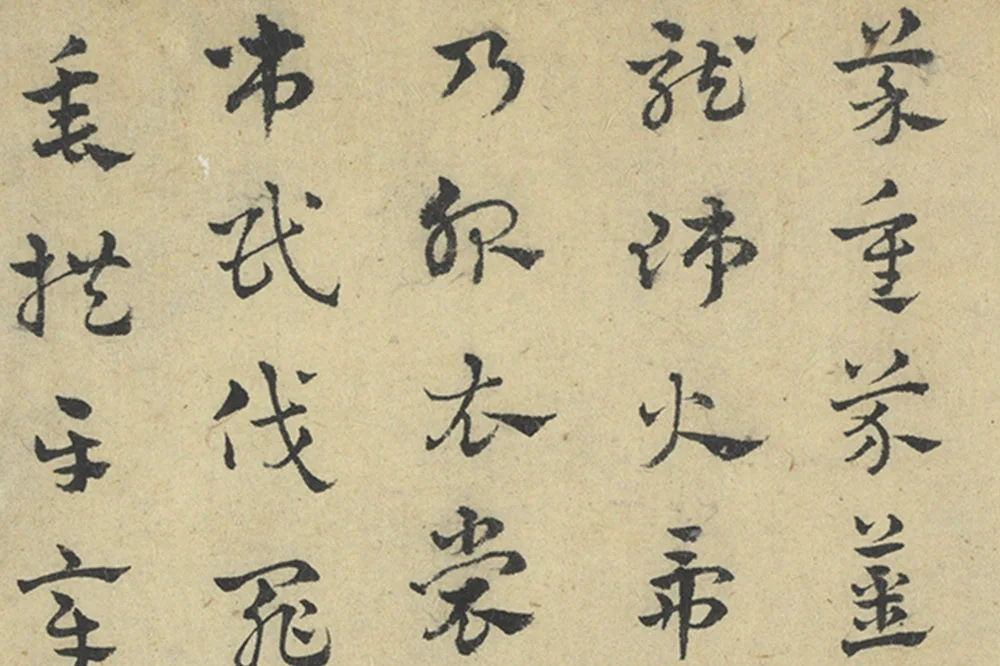 菜重芥薑
龍師火帝
乃服衣裳
吊民伐罪
垂拱平章